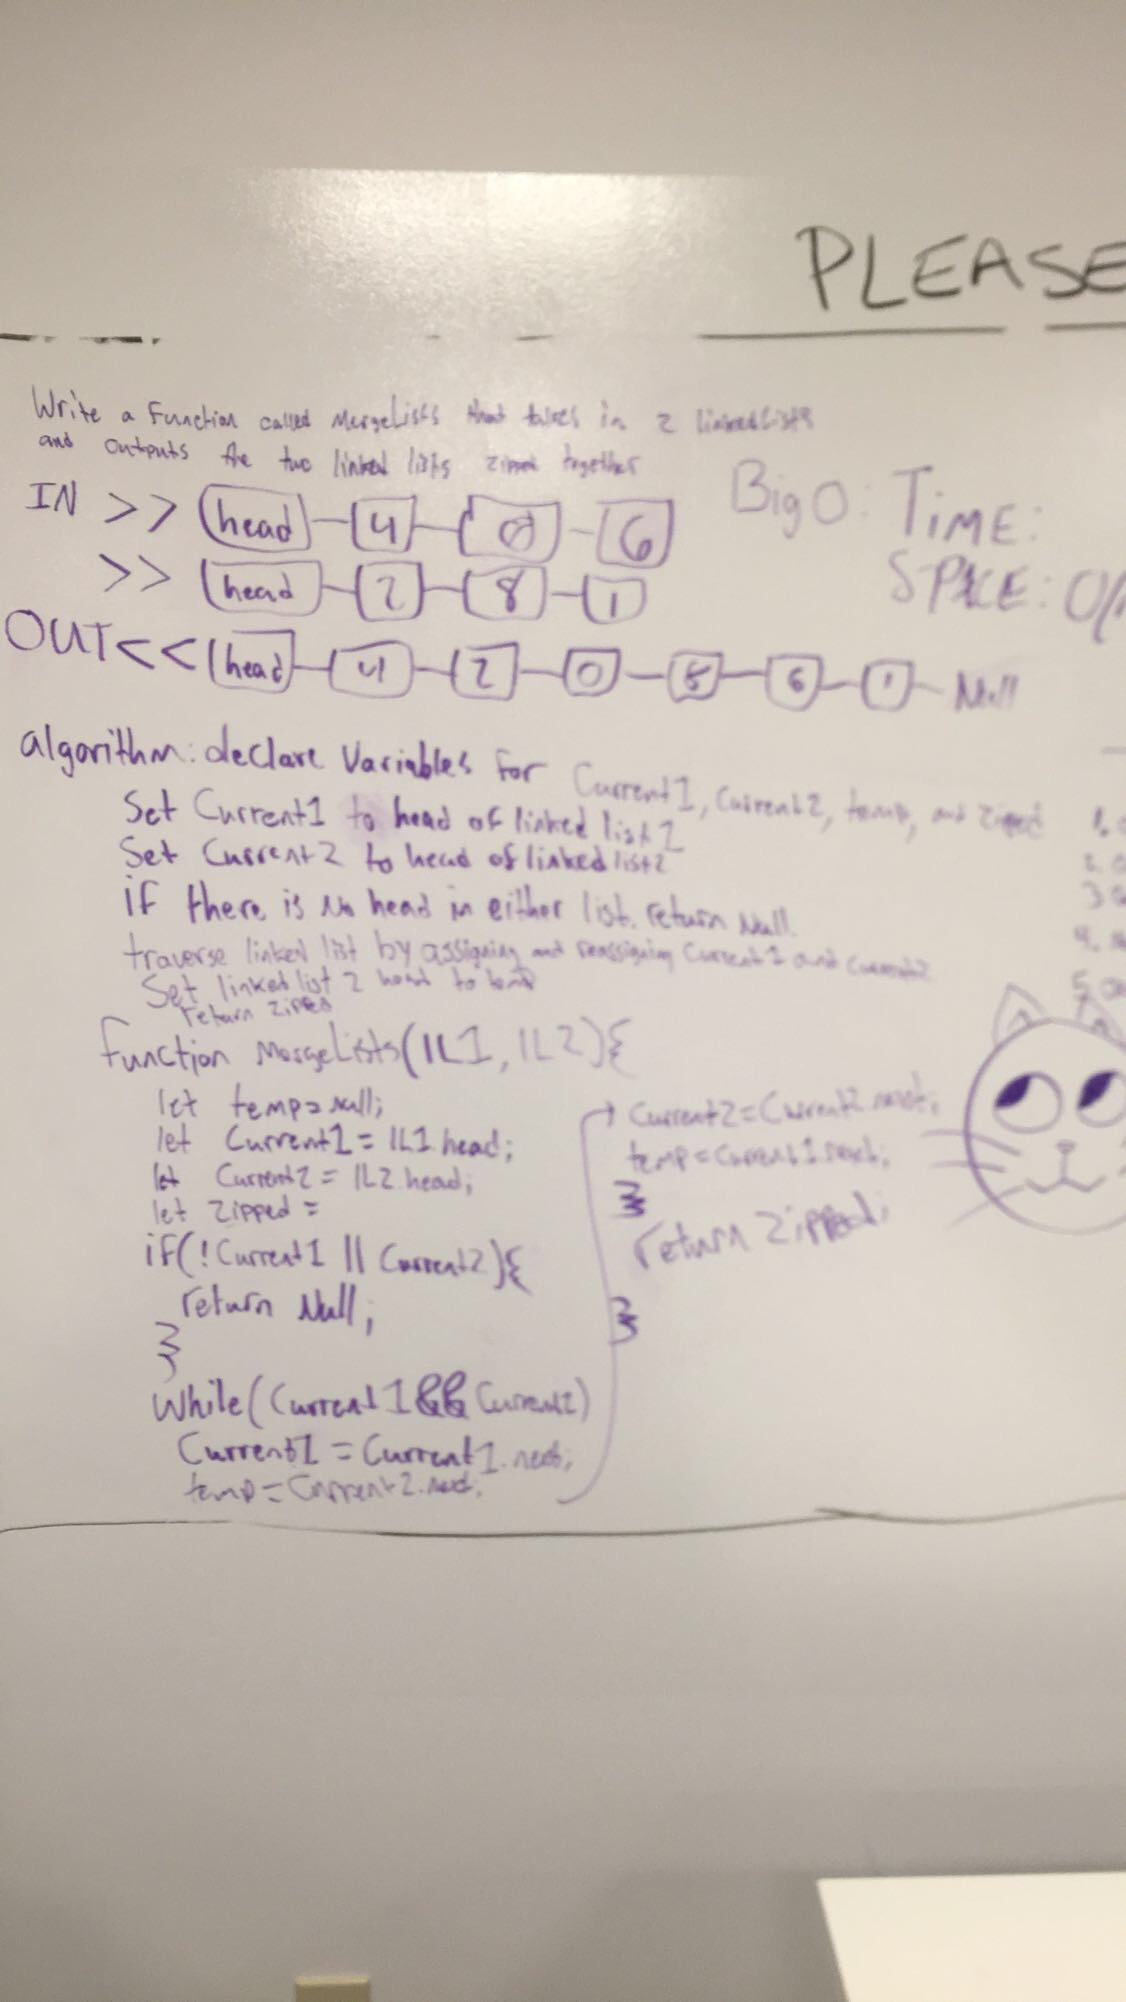 PLEASE
Write a Function called MergeLists that takes in 2 linkedlists
and outputs the two linked lists zipped together
IN >> head 4 0 6
>> head 2 8 1
OUT << head 4 2 0 8 6 1 Null
Big O: TiME:
SPACE: O(
algorithm: declare Variables for Current1, Current2, temp, and zipped
Set Current1 to head of linked list 1
Set Current2 to head of linked list2
if there is No head in either list. return Null.
traverse linked list by assigning and reassigning Current1 and Current2
Set linked list 2 head to temp
return zipped
function MergeLists(lL1, lL2){
let temp = Null;
let Current1 = lL1.head;
let Current2 = lL2.head;
let Zipped =
if(!Current1 || Current2){
return Null;
}
While(Current1 && Current2)
Current1 = Current1.next;
temp = Current2.next;
Current2 = Current2.next;
temp = Current1.next;
}
return Zipped;
}
1.
2.
3
4.
5